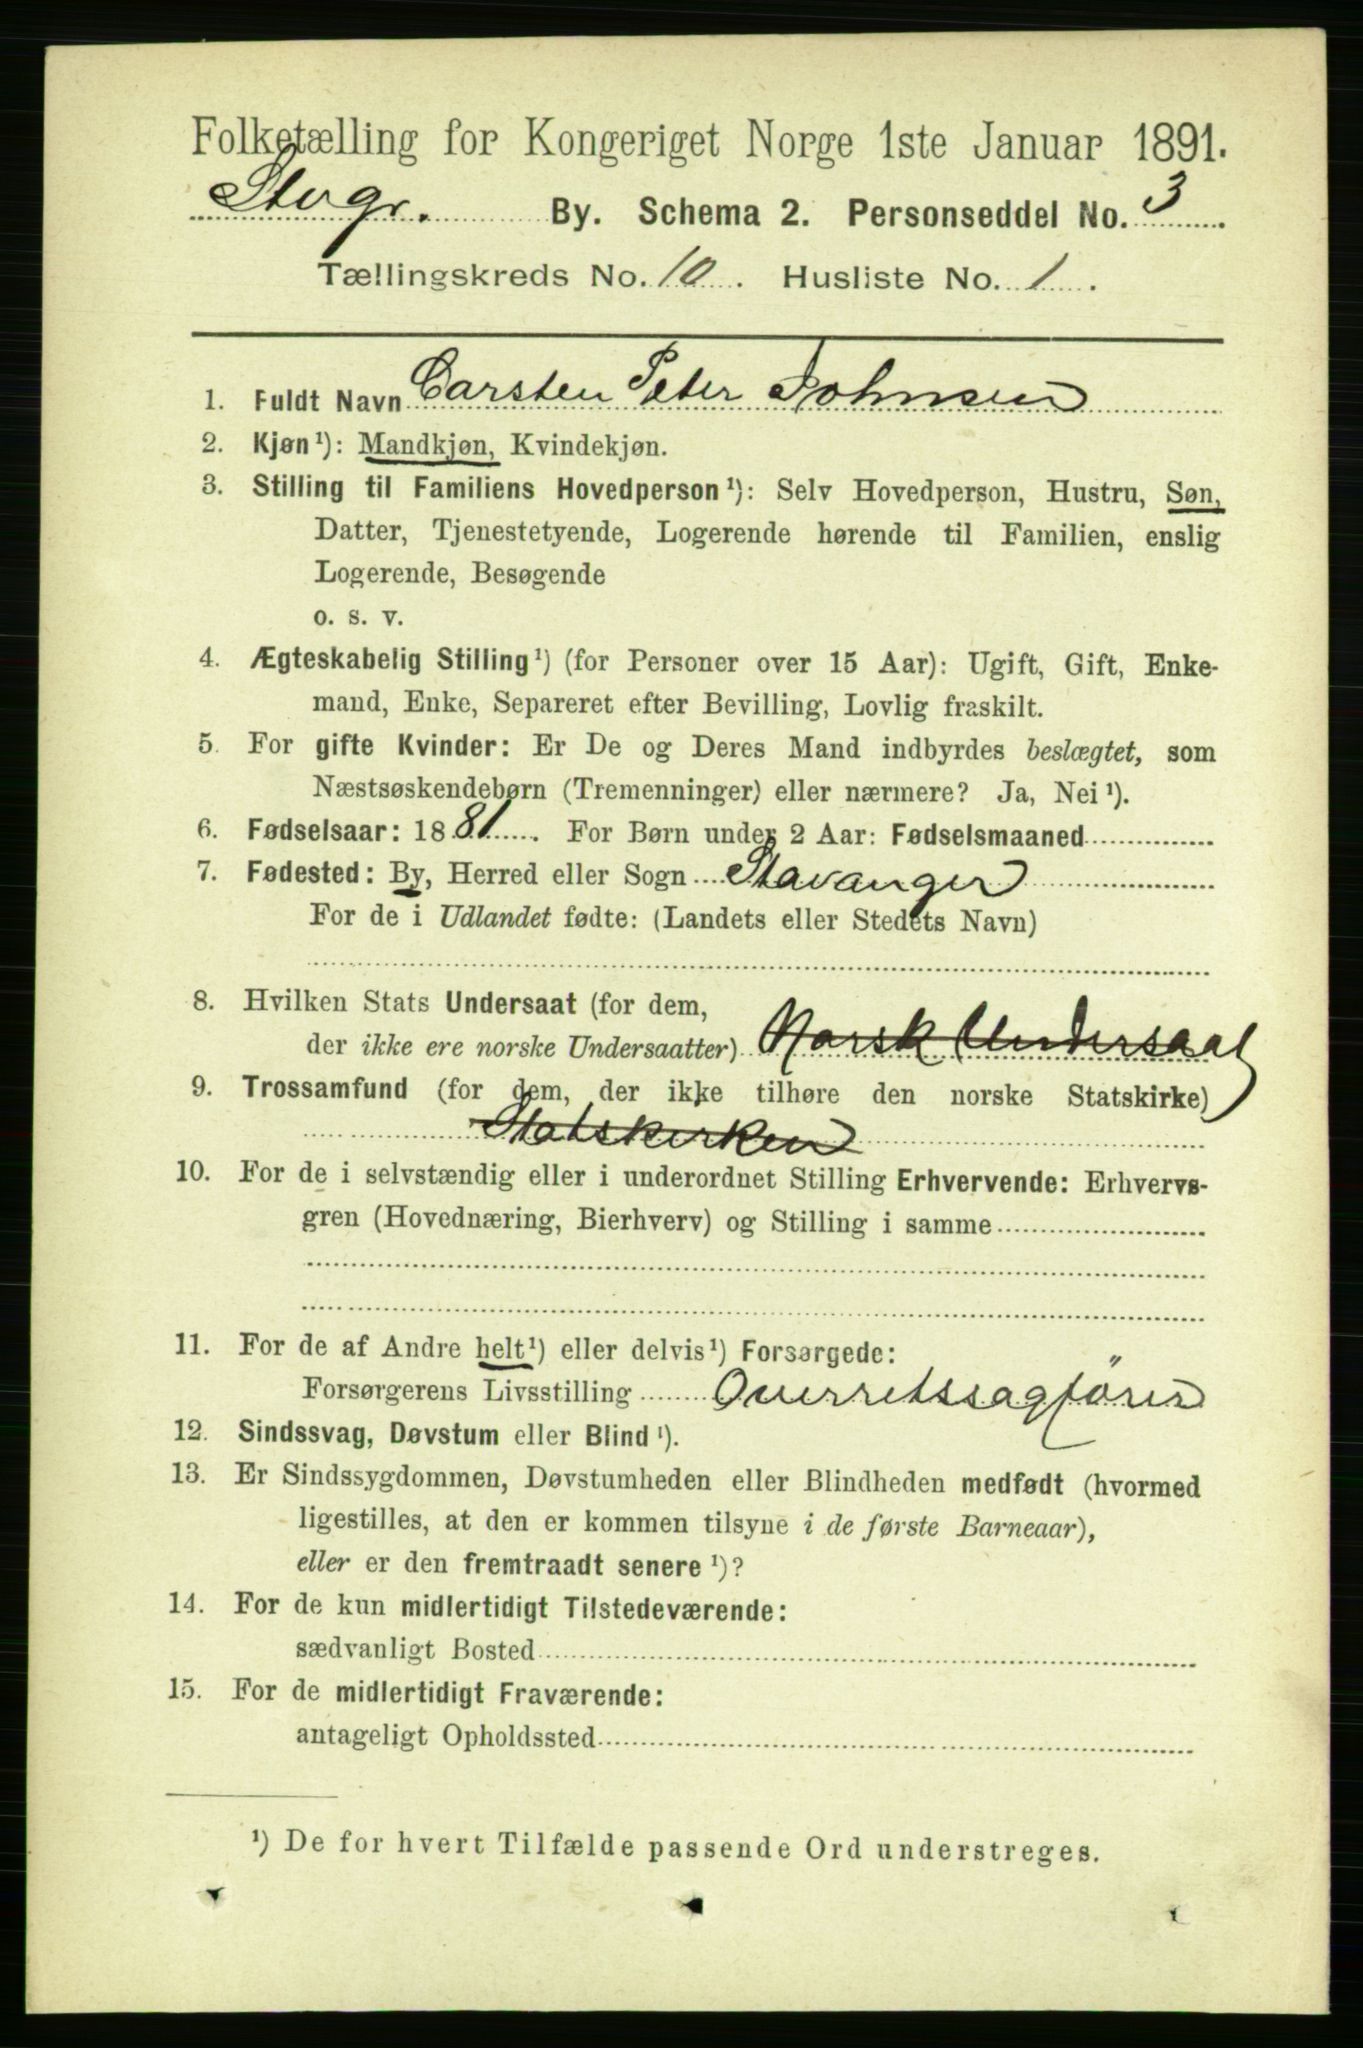 Folketælling for Kongeriget Norge 1ste Januar 1891.
Stvgr. By. Schema 2. Personseddel No. 3
Tællingskreds No. 10. Husliste No. 1.
1. Fuldt Navn Carsten Peter Johnsen
2. Kjøn¹): Mandkjøn, Kvindekjøn.
3. Stilling til Familiens Hovedperson¹): Selv Hovedperson, Hustru, Søn,
Datter, Tjenestetyende, Logerende hørende til Familien, enslig
Logerende, Besøgende
o. s. v.
4. Ægteskabelig Stilling¹) (for Personer over 15 Aar): Ugift, Gift, Enke-
mand, Enke, Separeret efter Bevilling, Lovlig fraskilt.
5. For gifte Kvinder: Er De og Deres Mand indbyrdes beslægtet, som
Næstsøskendebørn (Tremenninger) eller nærmere? Ja, Nei¹).
6. Fødselsaar: 1881. For Børn under 2 Aar: Fødselsmaaned
7. Fødested: By, Herred eller Sogn Stavanger
For de i Udlandet fødte: (Landets eller Stedets Navn)
8. Hvilken Stats Undersaat (for dem,
der ikke ere norske Undersaatter) Norsk Undersaat
9. Trossamfund (for dem, der ikke tilhøre den norske Statskirke)
Statskirken
10. For de i selvstændig eller i underordnet Stilling Erhvervende: Erhvervs-
gren (Hovednæring, Bierhverv) og Stilling i samme
11. For de af Andre helt¹) eller delvis¹) Forsørgede:
Forsørgerens Livsstilling Overretssagfører
12. Sindssvag, Døvstum eller Blind¹).
13. Er Sindssygdommen, Døvstumheden eller Blindheden medfødt (hvormed
ligestilles, at den er kommen tilsyne i de første Barneaar),
eller er den fremtraadt senere¹)?
14. For de kun midlertidigt Tilstedeværende:
sædvanligt Bosted
15. For de midlertidigt Fraværende:
antageligt Opholdssted
¹) De for hvert Tilfælde passende Ord understreges.